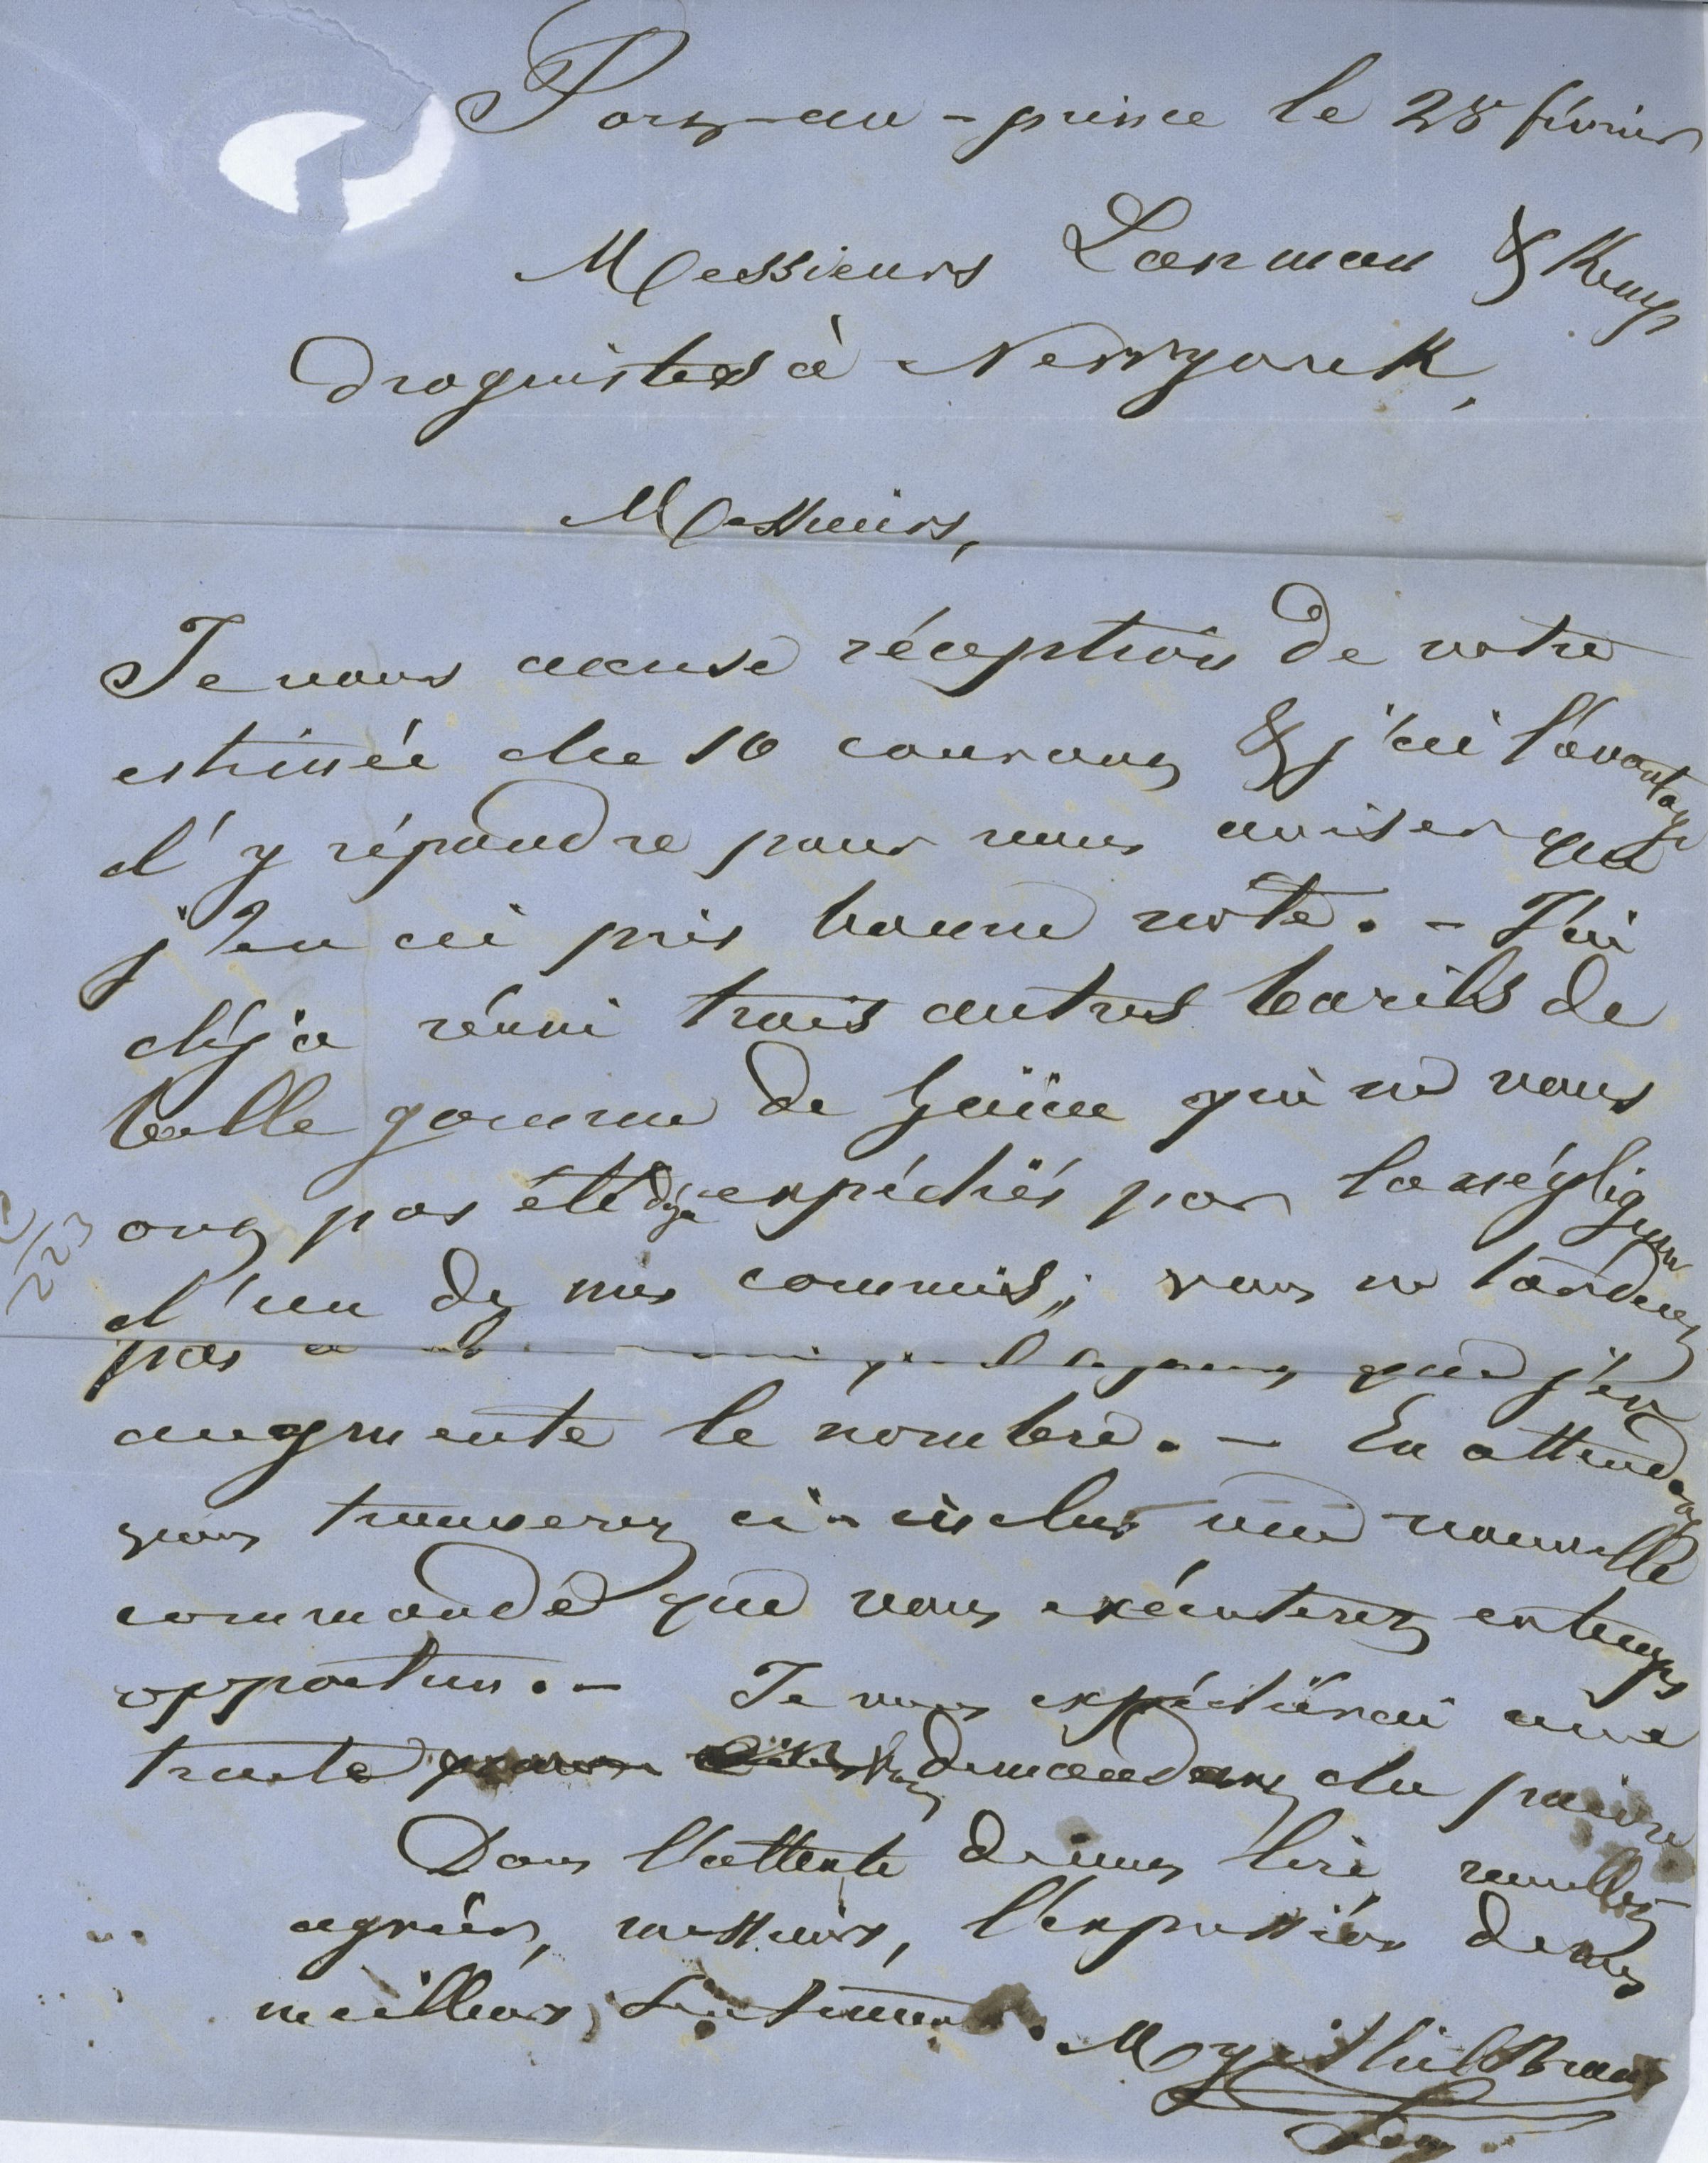 Port-au-prince le 28 février
Messieurs Lanman & Kemp
Droguistes à Newyork,
Messieurs,
Je vous accuse réception de votre
estimée du 10 courant & j'ai l'avantage
d'y répondre pour vous aviser que
j'en ai pris bonne note. - J'ai
déjà réuni trois autres barils de
belle gomme de Gaïac qui ne vous
ont pas été déjà expédiés par la négligence
d'un de mes commis; vous ne tarderez
pas à que j'en
augmente le nombre. - En attendant
vous trouverez ci-inclus une nouvelle
commande que vous exécuterez en temps
opportun. - Je vous expédierai une
traite demandant du poivre
Dans l'attente de vous lire veuillez
agréer, messieurs, l'expression de mes
meilleurs sentiments.
223